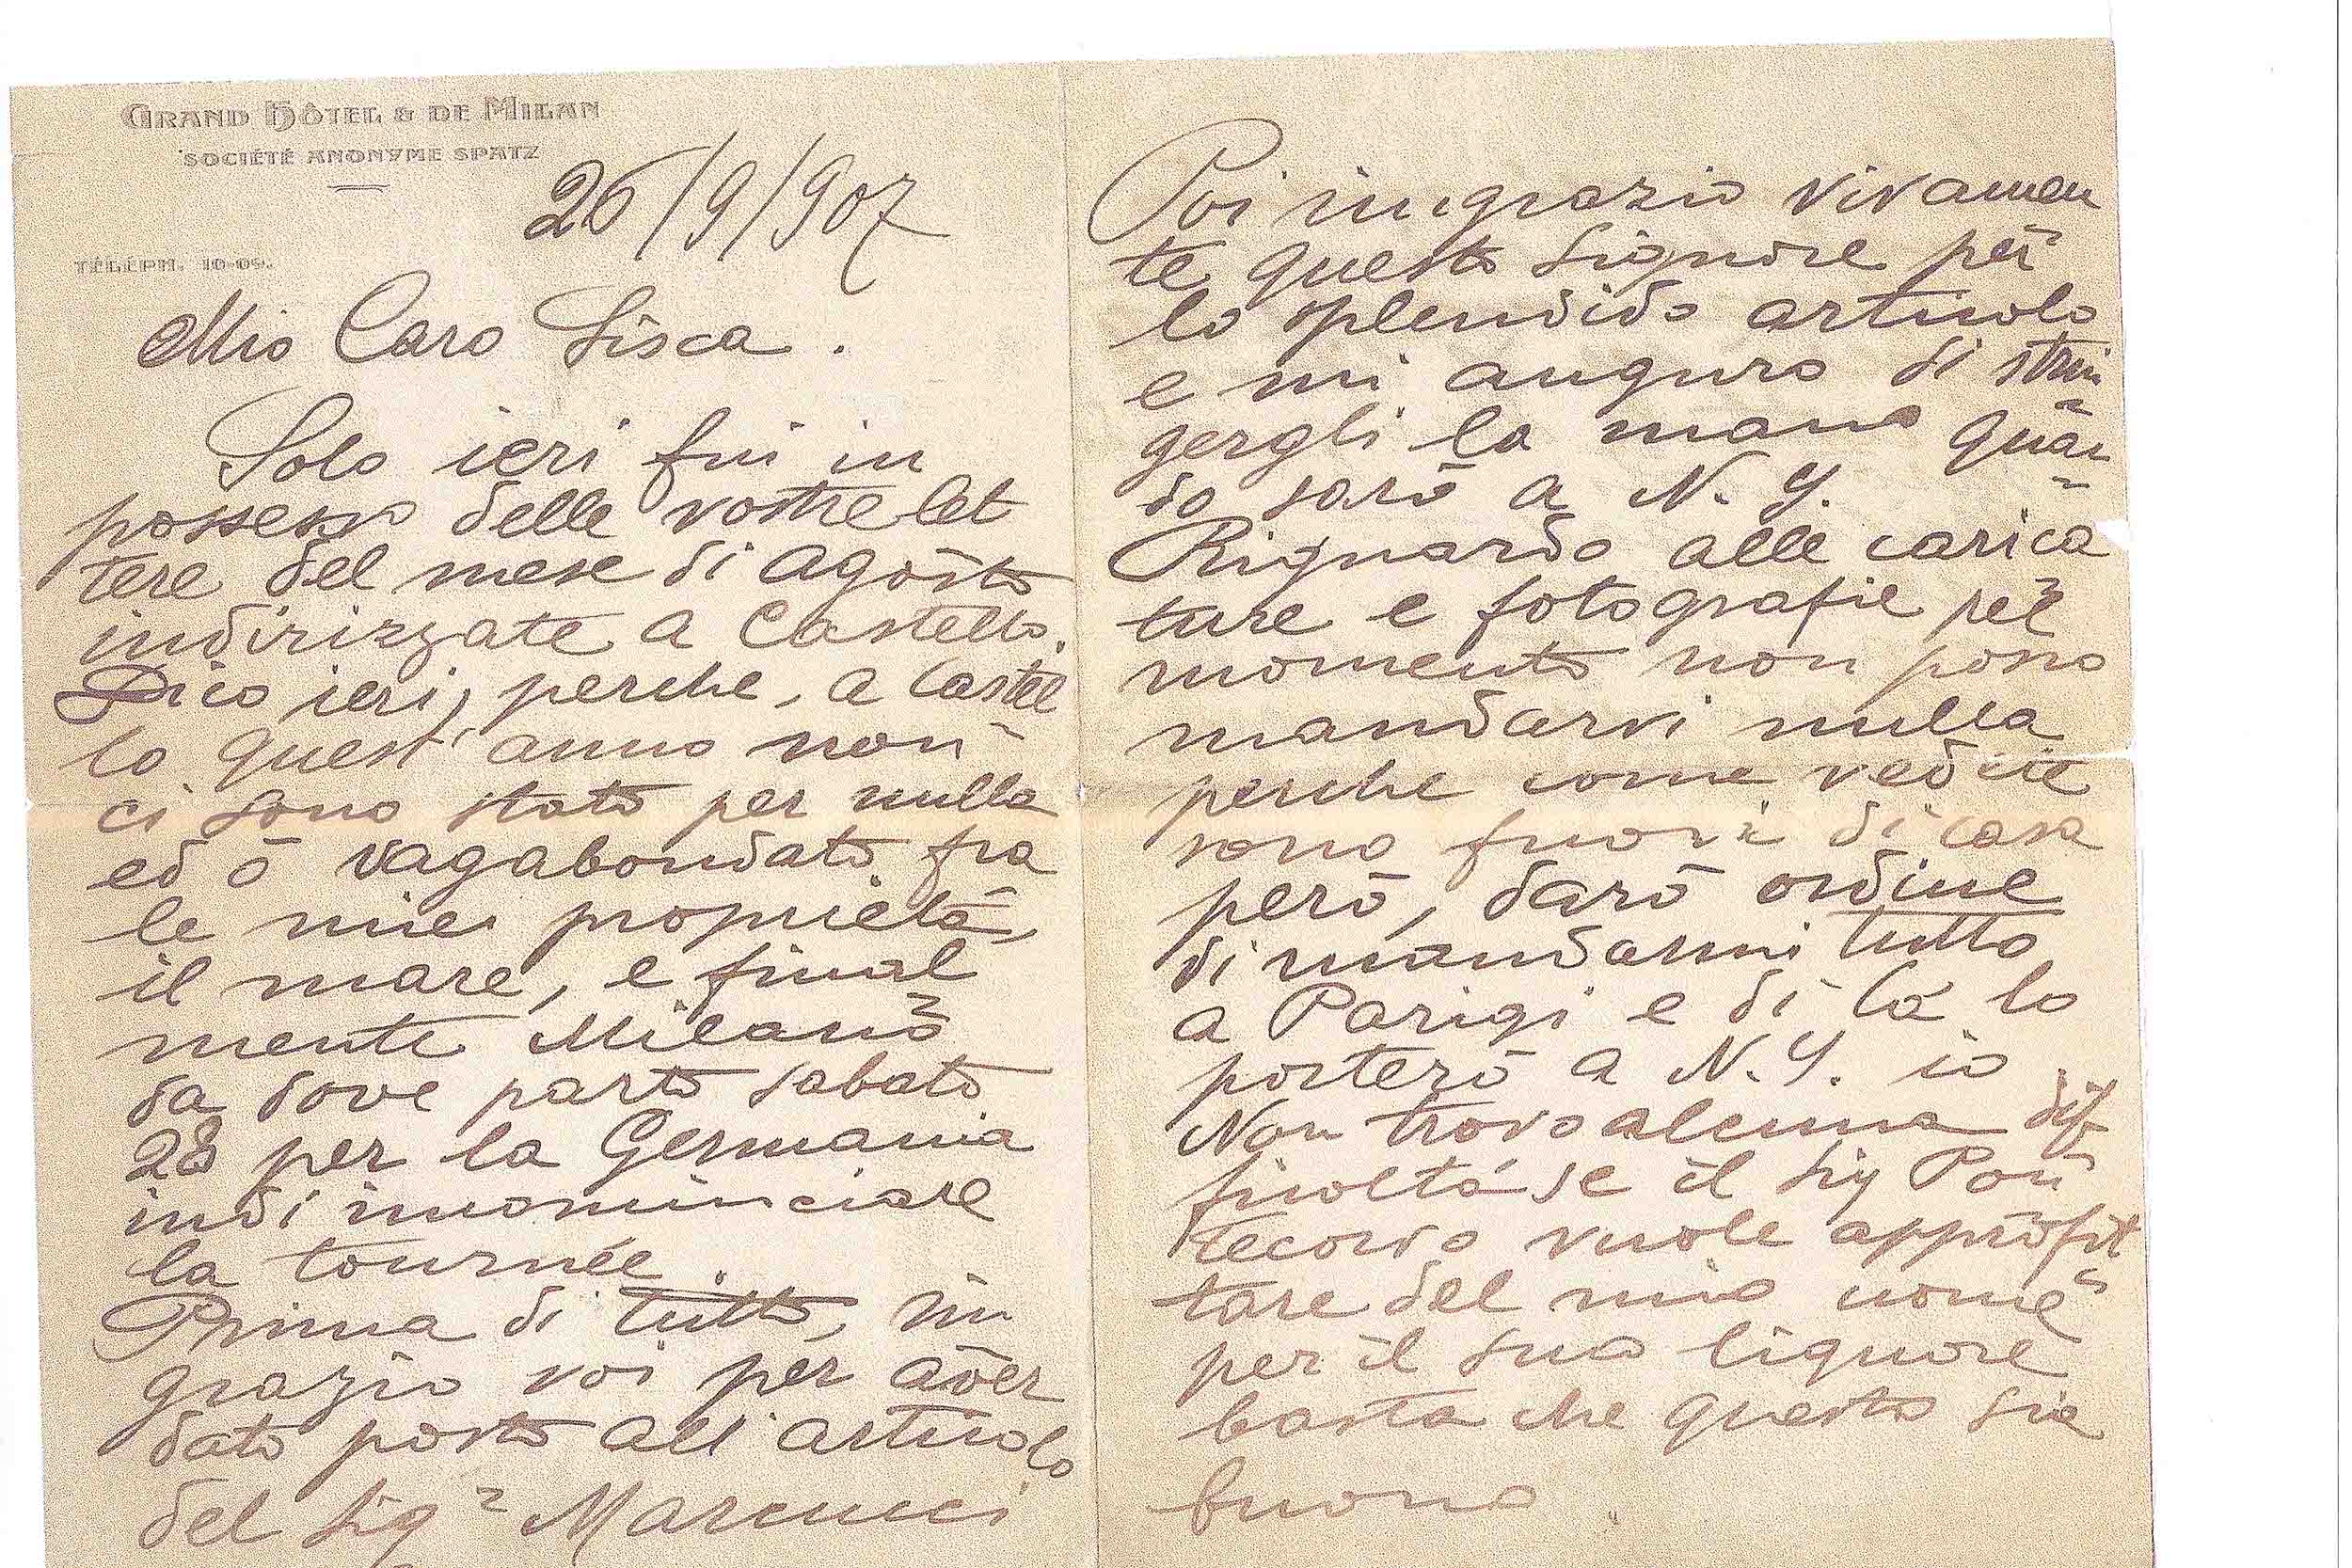 GRAND HÔTEL & DE MILAN
SOCIÉTÉ ANONYME SPATZ
26/9/907
TÉLÉPH. 10-09.
Mio Caro Sisca.
Solo ieri fui in
possesso delle vostre let
tere del mese di Agosto
indirizzate a Castello.
Dico ieri, perche, a Castel
lo quest'anno non
ci sono stato per nulla
ed ō vagabondato fra
le mie proprietà,
il mare, e final
mente Milano
da dove parto sabato
28 per la Germania
indi incominciare
la tournée.
Prima di tutto, rin
grazio voi per aver
dato posto all'articolo
del Sigr Marcucci
Poi ringrazio vivamen
te questo signore per
lo splendido articolo
e mi auguro di strin
gergli la mano quan
do sarō a N. Y.
Riguardo alle carica
ture e fotografie pel
momento non posso
mandarvi nulla
perche come vedete
sono fuori di casa
perō, darō ordine
di mandarmi tutto
a Parigi e di là lo
porterō a N. Y. io
Non trovo alcuna dif
ficoltà se il Sig Pon
tecorvo vuole approfit
tare del mio nome
per il suo liquore
basta che questo sia
buono.